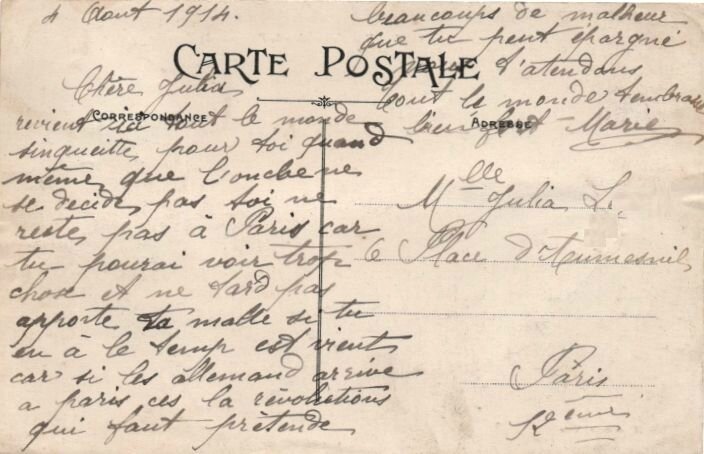 4 Aout 1914.
CARTE POSTALE
CORRESPONDANCE
Chère Julia
revient ici tout le monde
sinqueitte pour toi quand
même que l'onche ne
se decide pas toi ne
reste pas à Paris car
tu pourai voir trop
chose et ne tard pas
apporte ta malle si tu
en à le temp est vient
car si les allemand arrive
a paris ces la révolutions
qui faut prétendre
beaucoups de malheur
que tu peut épargné
t'atendans
tout le monde t'embrasse
bien fort Marie
ADRESSE
Mlle Julia L.
6 Place d'Aumesnil
Paris
12 ème